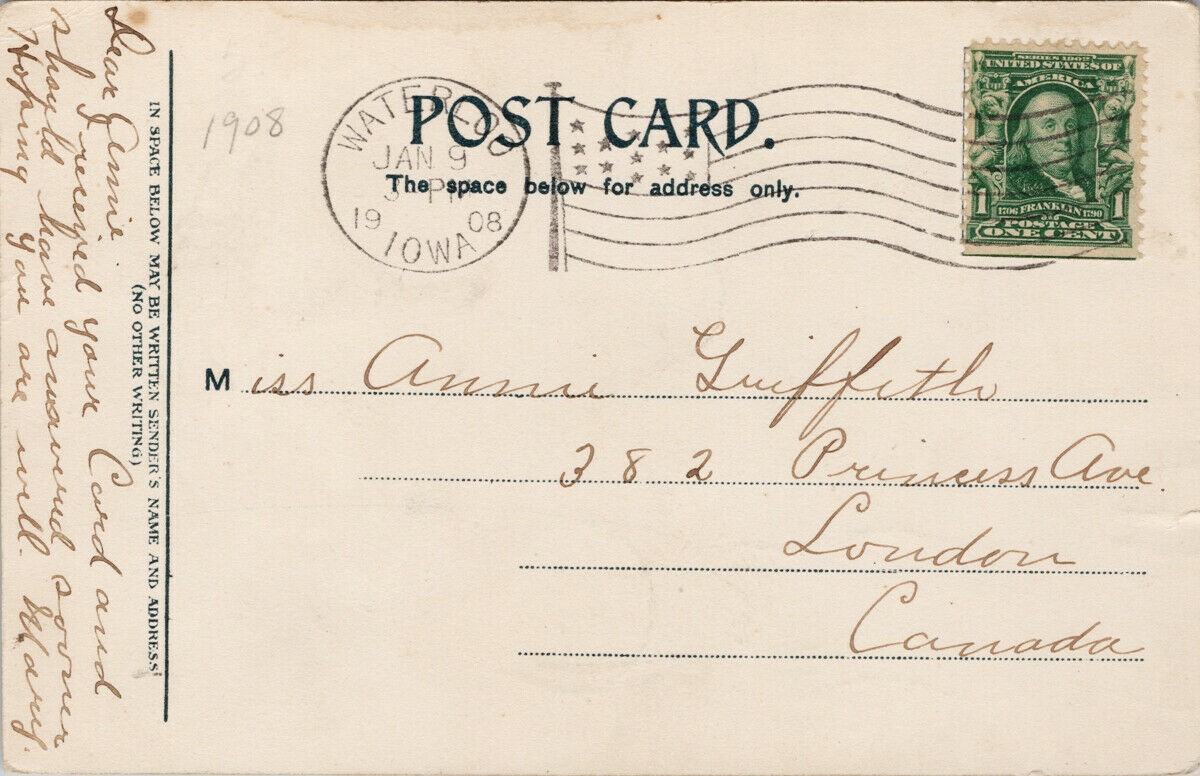 Dear Annie
I received your Card and
should have answered sooner
Hoping you are well. Mary.
IN SPACE BELOW MAY BE WRITTEN SENDER'S NAME AND ADDRESS
(NO OTHER WRITING)
1908
WATERLOO
JAN 9
PM
19 08
IOWA
POST CARD.
The space below for address only.
SERIES 1902
UNITED STATES OF
AMERICA
1 1
1706 FRANKLIN 1790
POSTAGE
ONE CENT
Miss Annie Griffeth
382 Princess Ave.
London
Canada